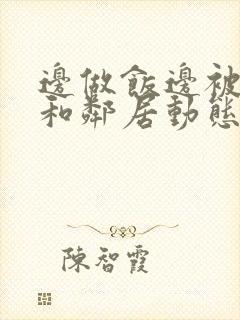 邊做飯邊被
和鄰居動態
陳智霞